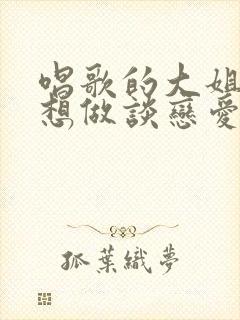 唱歌的大姐
想做談戀愛
孤葉織夢